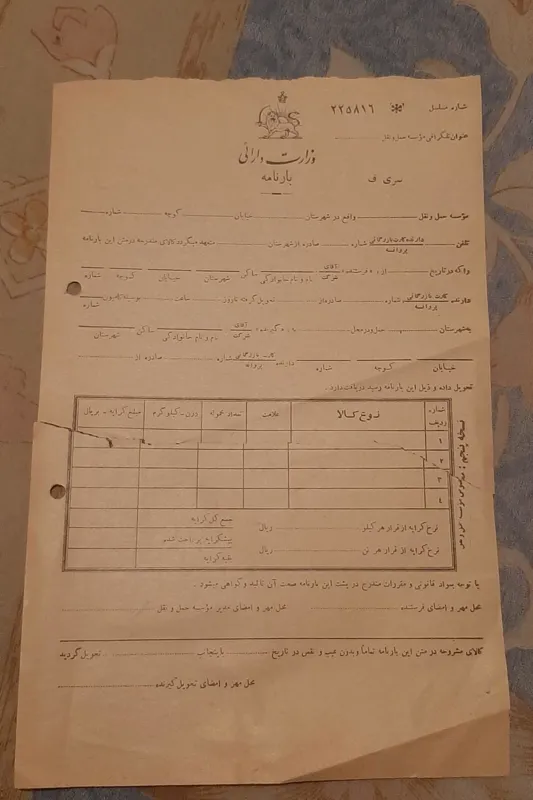 شماره مسلسل ۲۲۵۸۱۶
عنوان تلگرافی مؤسسه حمل و نقل
وزارت دارائی
بارنامه
سری ف
مؤسسه حمل و نقل واقع در شهرستان خیابان کوچه شماره
تلفن دارنده کارت بازرگانی پروانه شماره صادره از شهرستان متعهد میگردد کالای مندرجه در متن این بارنامه
را که در تاریخ از فرستنده آقای شرکت نام و نام خانوادگی ساکن شهرستان خیابان کوچه شماره
دارنده کارت بازرگانی پروانه شماره صادره از تحویل گرفته تا روز ساعت بوسیله کامیون شماره
به شهرستان حمل و در محل به گیرنده آقای شرکت نام و نام خانوادگی ساکن شهرستان
خیابان کوچه شماره دارنده کارت بازرگانی پروانه شماره صادره از
تحویل داده و ذیل این بارنامه رسید دریافت دارد.
شماره ردیف نوع کالا علامت تعداد عدل وزن - کیلوگرم مبلغ کرایه - بریال
۱
۲
۳
۴
نسخه پنجم : مخصوص مؤسسه حمل و نقل
جمع کل کرایه
نرخ کرایه از قرار هر کیلو ریال
پیشکرایه پرداخت شده
نرخ کرایه از قرار هر تن ریال
بقیه کرایه
با توجه بمواد قانونی و مقررات مندرج در پشت این بارنامه صحت آن تائید و گواهی میشود .
محل مهر و امضای فرستنده محل مهر و امضای مدیر مؤسسه حمل و نقل
کالای مشروحه در متن این بارنامه تماماً و بدون عیب و نقص در تاریخ باینجانب تحویل گردید
محل مهر و امضای تحویل گیرنده